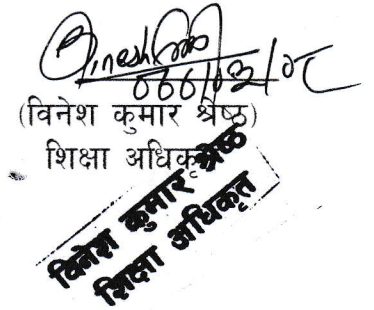 (विनेश कुमार श्रेष्ठ)
शिक्षा अधिकृत
विनेश कुमार श्रेष्ठ
शिक्षा अधिकृत